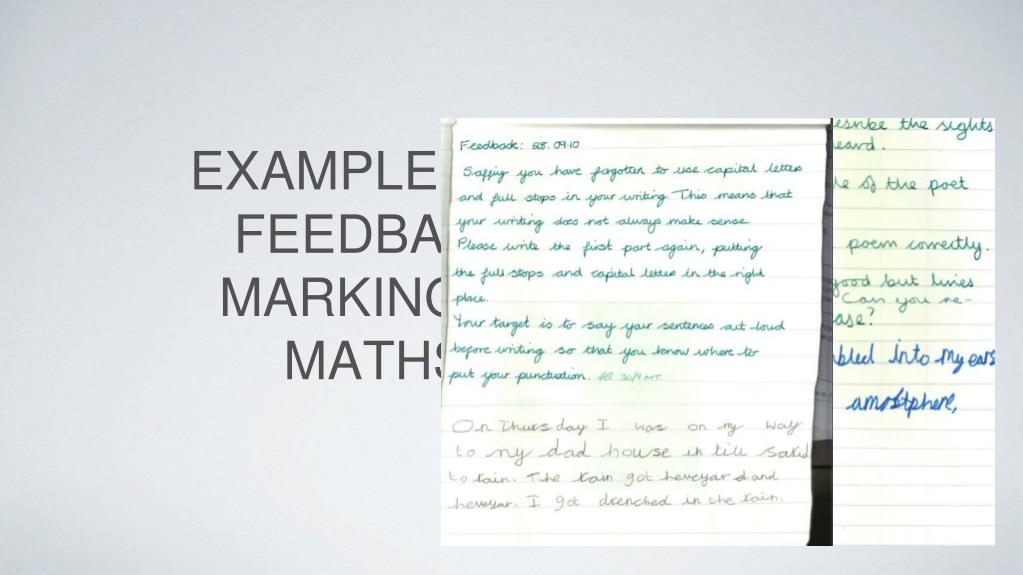 EXAMPLE
FEEDBA
MARKING
MATHS
Feedback: 28.09.10
Saffiy you have fogotten to use capital letters
and full stops in your writing. This means that
your writing does not always make sense.
Please write the first part again, putting
the full stops and capital letter in the right
place.
Your target is to say your sentences out loud
before writing so that you know where to
put your punctuation. 30/9
On Thursday I was on my way
to my dad house in till
to rain. The rain got heveyar and
heveyar. I got drenched in the rain.
esribe the sights
eard.
le of the poet
poem correctly.
good but lines
Can you re-
ase?
bled into my ears
amostphere,